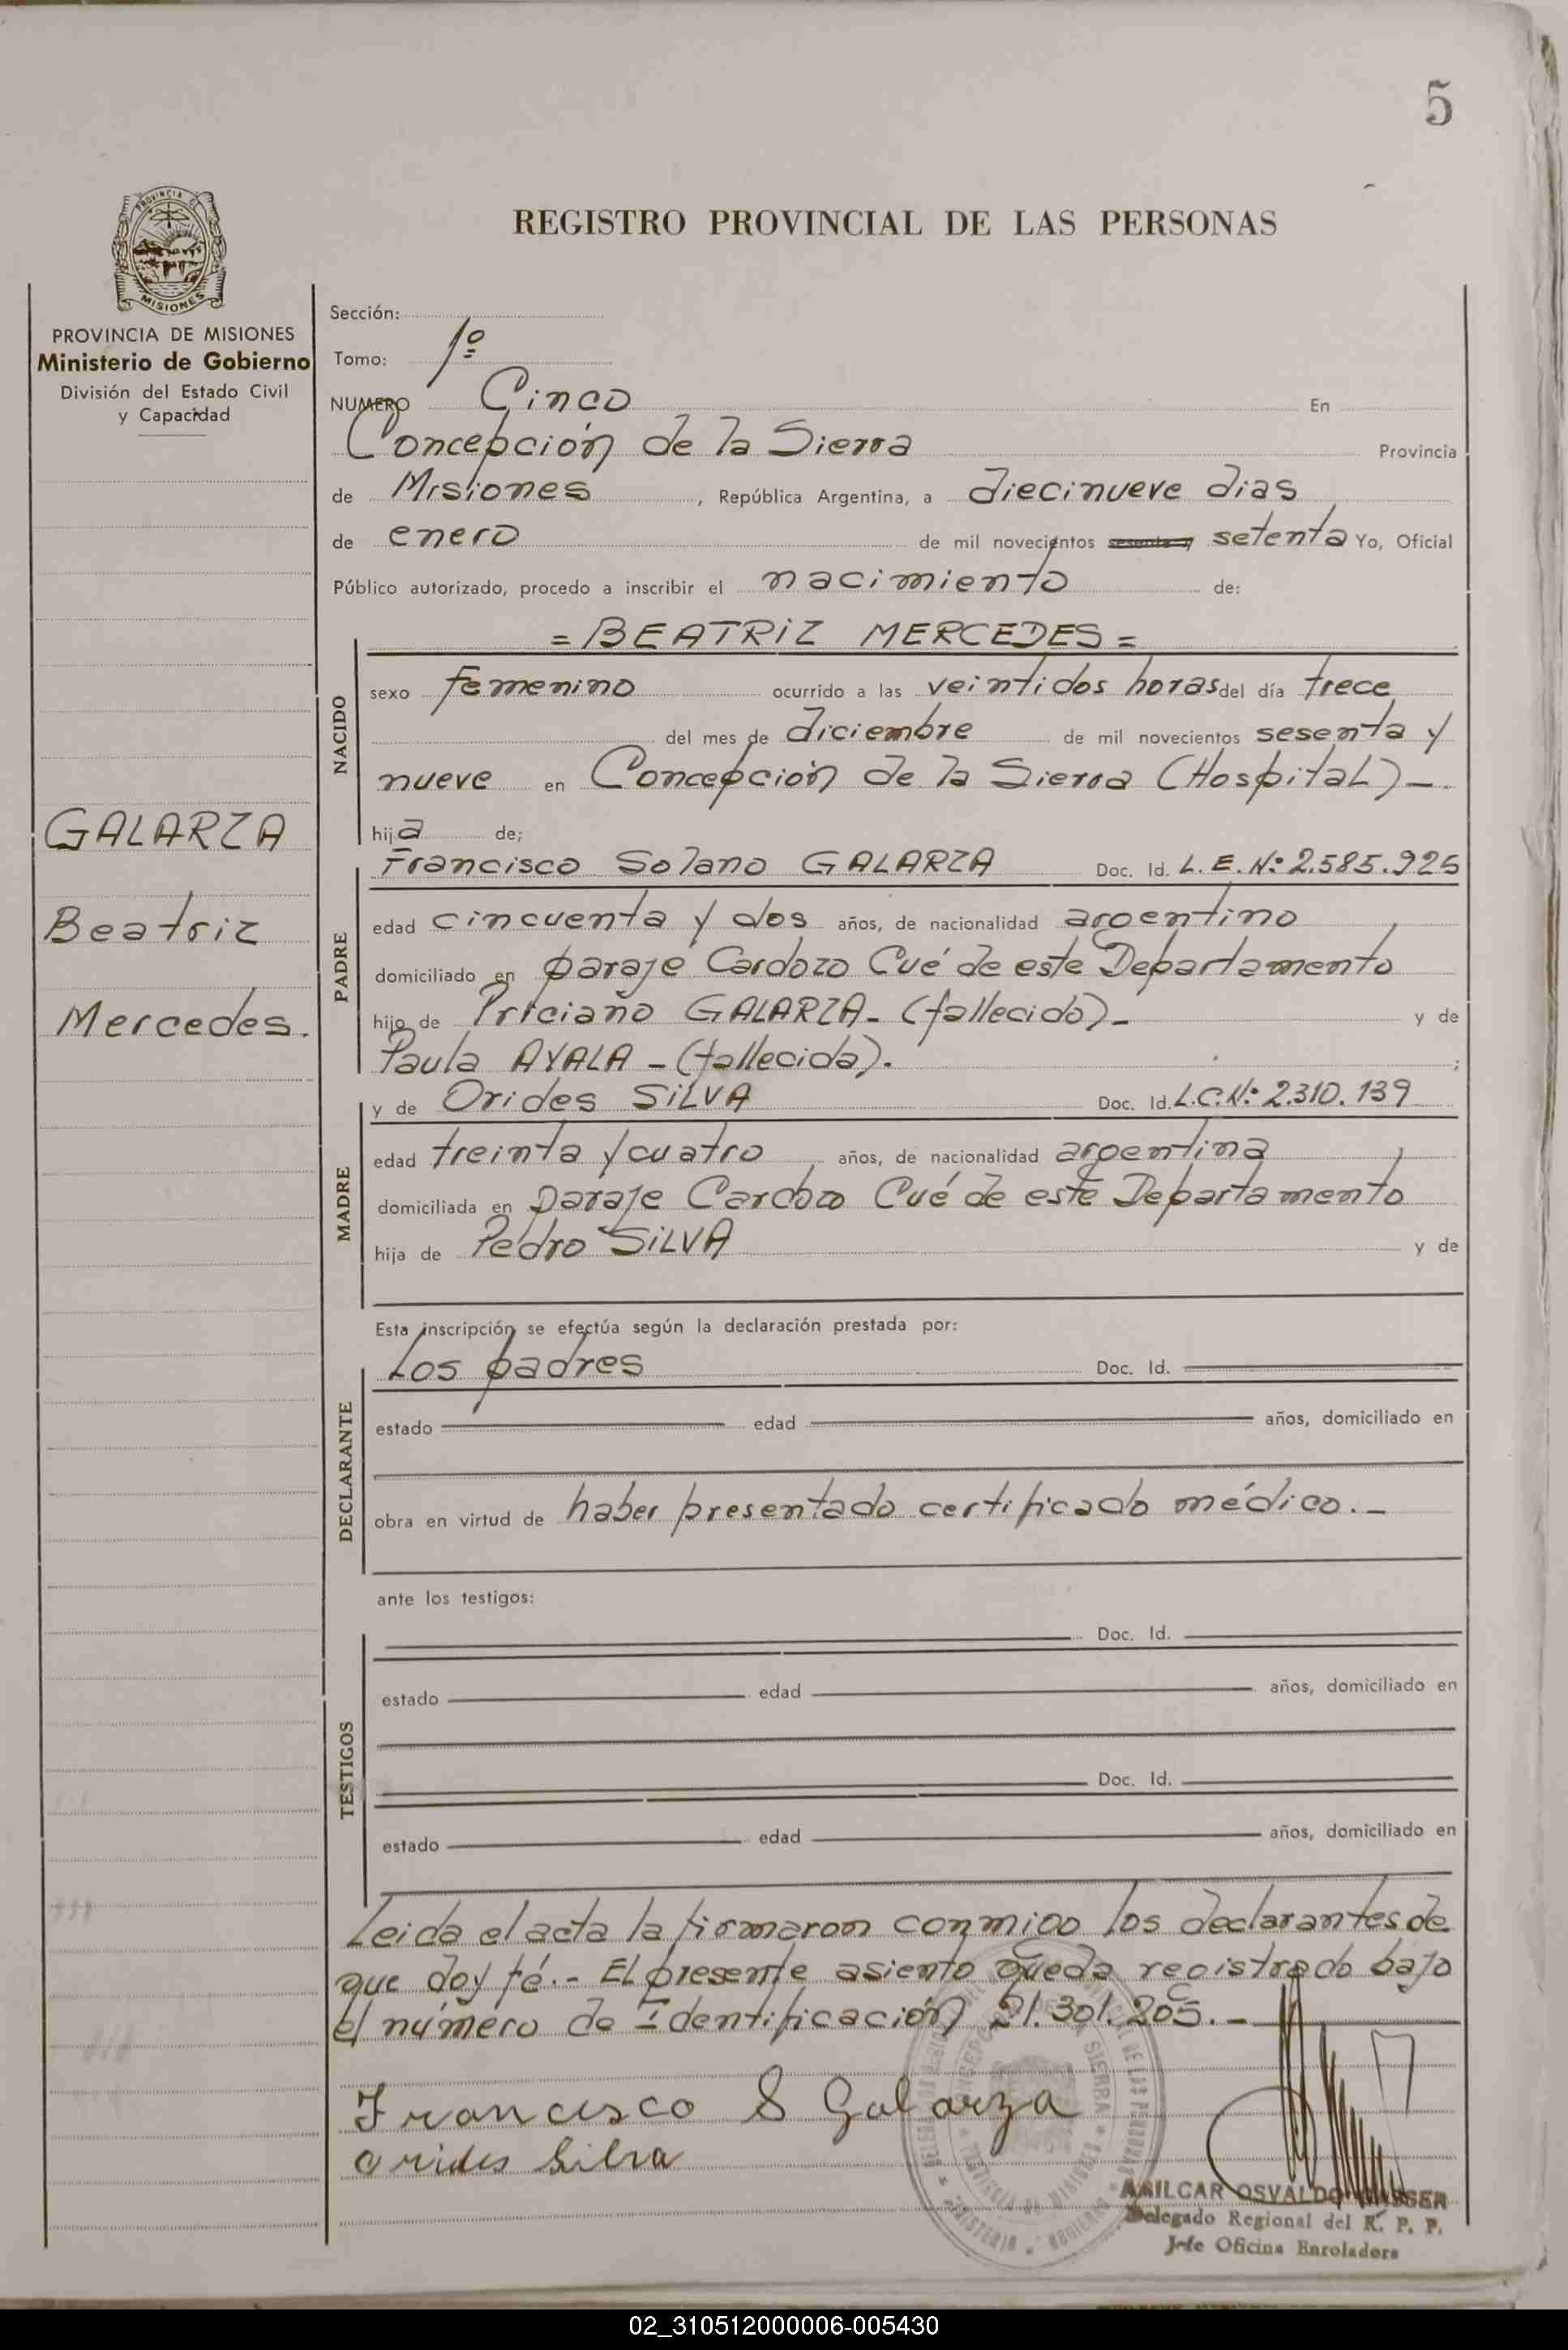 5
REGISTRO PROVINCIAL DE LAS PERSONAS
PROVINCIA DE MISIONES
Ministerio de Gobierno
División del Estado Civil
y Capacidad
GALARZA
Beatriz
Mercedes.
Sección:
Tomo: 1º
NUMERO Cinco En
Concepción de la Sierra Provincia
de Misiones, República Argentina, a diecinueve dias
de enero de mil novecientos setenta Yo, Oficial
Público autorizado, procedo a inscribir el nacimiento de:
= BEATRIZ MERCEDES =
NACIDO
sexo femenino ocurrido a las veintidos horas del día trece
del mes de diciembre de mil novecientos sesenta y
nueve en Concepción de la Sierra (Hospital) -.
hija de;
PADRE
Francisco Solano GALARZA Doc. Id. L.E.Nº 2.585.925
edad cincuenta y dos años, de nacionalidad argentino
domiciliado en paraje Cardozo Cué de este Departamento
hijo de Priciano GALARZA - (fallecido) - y de
Paula AYALA - (fallecida). ;
MADRE
y de Orides SILVA Doc. Id. L.C.Nº 2.310.139
edad treinta y cuatro años, de nacionalidad argentina
domiciliada en paraje Cardozo Cué de este Departamento
hija de Pedro SILVA y de
Esta inscripción se efectúa según la declaración prestada por:
DECLARANTE
Los padres Doc. Id.
estado edad años, domiciliado en
obra en virtud de haber presentado certificado médico. -
ante los testigos:
TESTIGOS
Doc. Id.
estado edad años, domiciliado en
Doc. Id.
estado edad años, domiciliado en
Leida el acta la firmaron conmigo los declarantes de
que doy fé. - El presente asiento queda registrado bajo
el número de Identificación 21.301.205. -
Francisco S Galarza
orides Silva
OSVALDO
Delegado Regional del R. P. P.
Jefe Oficina Enroladora
02_310512000006-005430